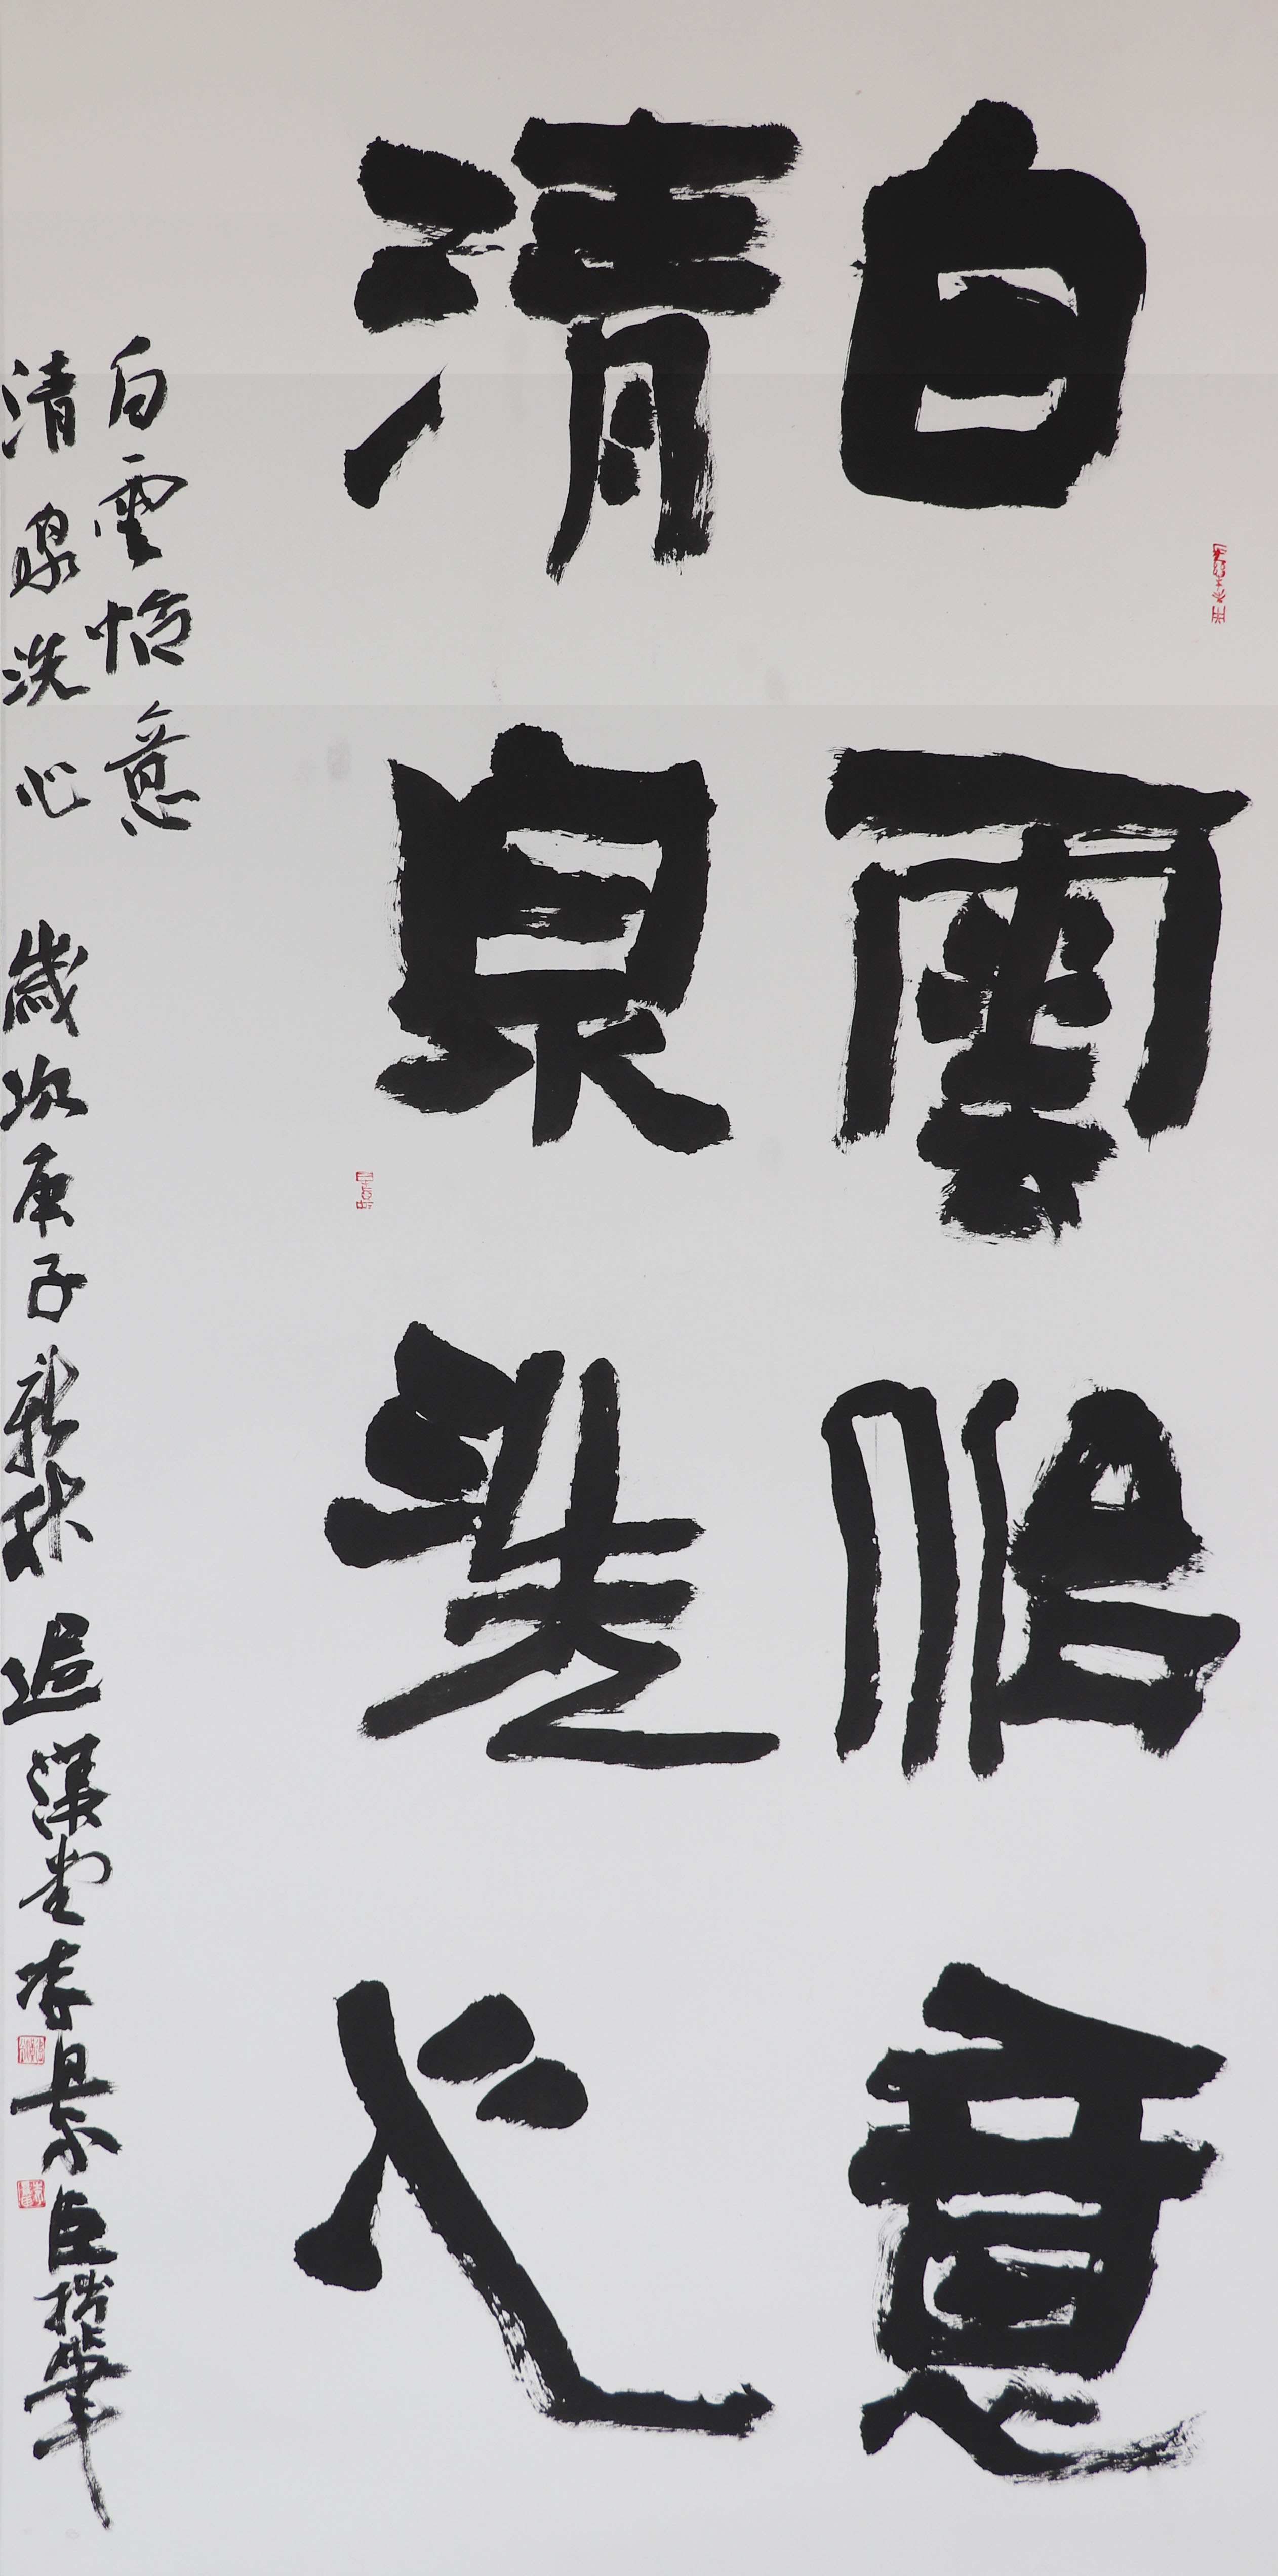 白雲怡意
清泉洗心
白雲怡意
清泉洗心 歲次庚子新秋 追漢堂李景臣撈筆